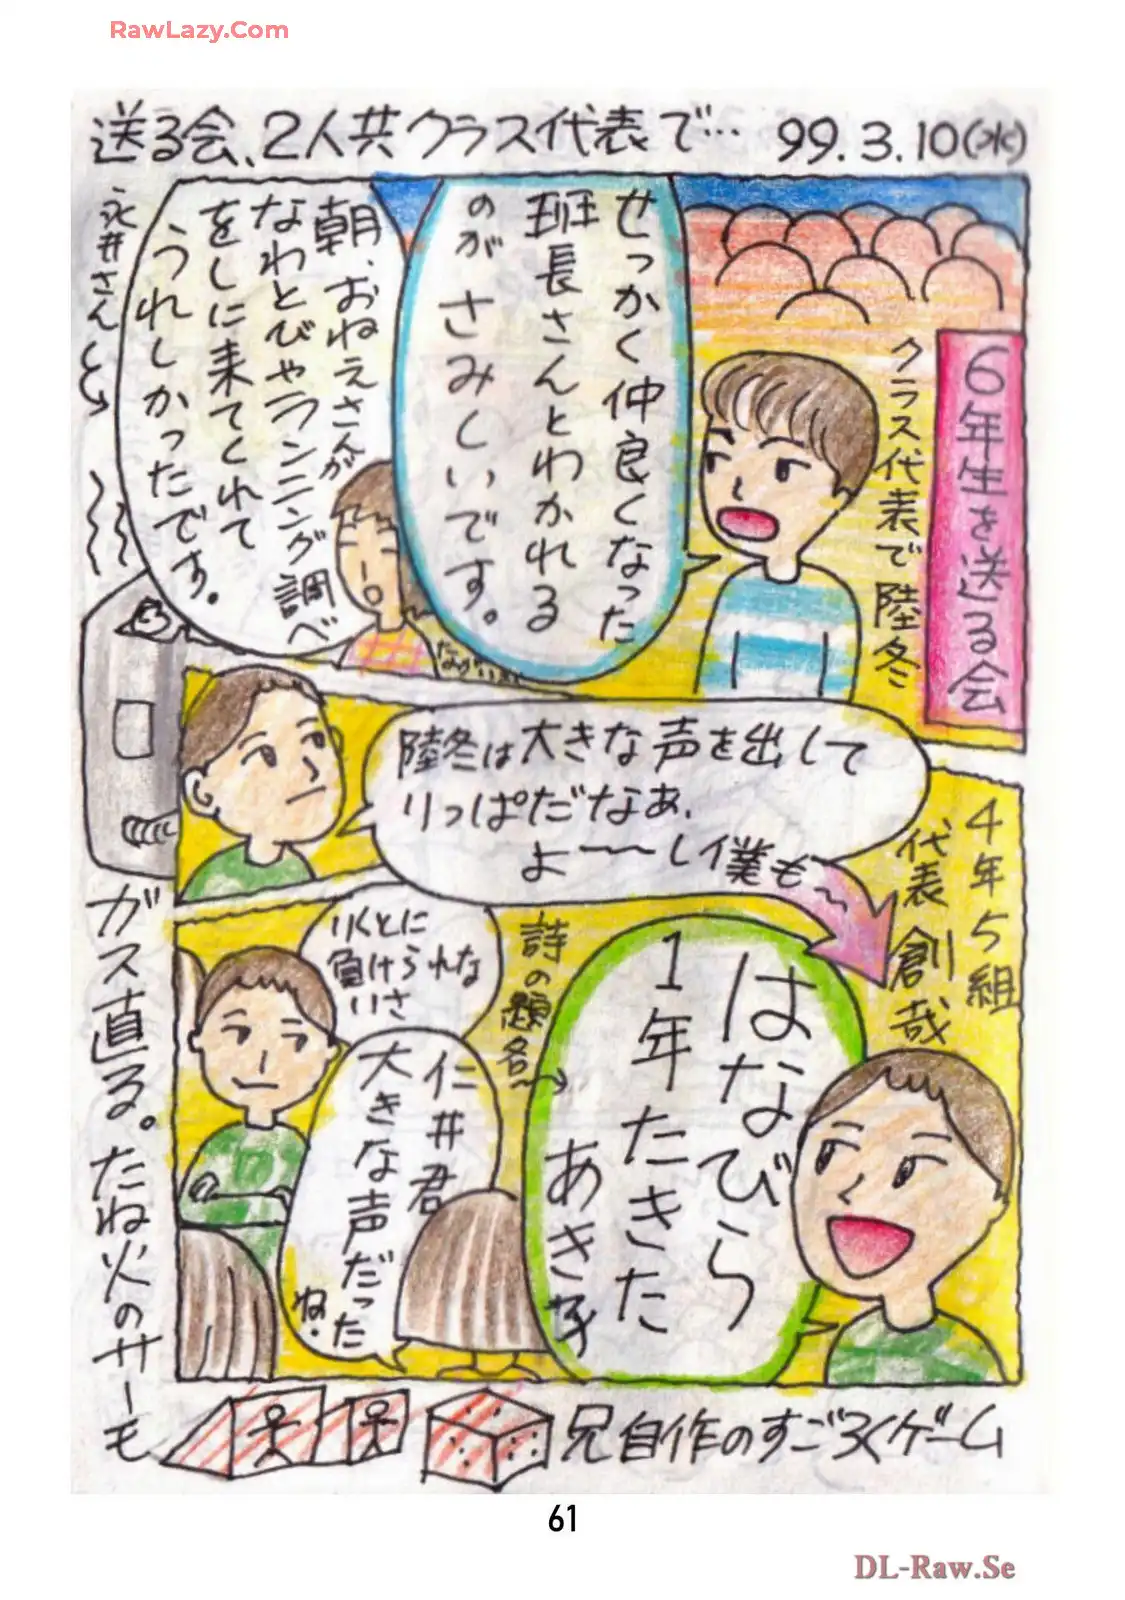 RawLazy.Com
送る会、2人共クラス代表で…
99.3.10(水)
6年生を送る会
クラス代表で陸冬
せっかく仲良くなった
班長さんとわかれる
のがさみしいです。
朝、おねえさんが
なわとびやランニング調べ
をしに来てくれて
うれしかったです。
永井さん
陸冬は大きな声を出して
りっぱだなぁ、
よーーし僕も〜
4年5組
代表 創哉
はなびら
1年たきた
あきオ
詩の題名〜
りくとに
負けられな
いさ
仁井君
大きな声だった
ね。
ガス直る。たね火のサーモ
兄自作のすごろくゲーム
61
DL-Raw.Se